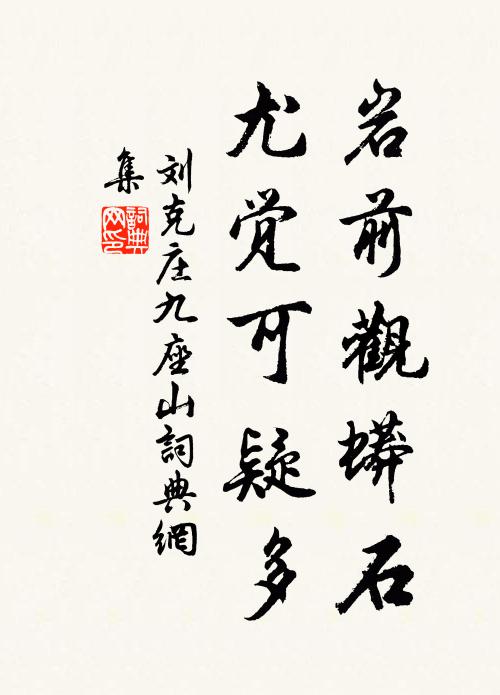 岩前觀蟒石
尤觉可疑多
刘克庄九座山詞典網
集
詞典网印